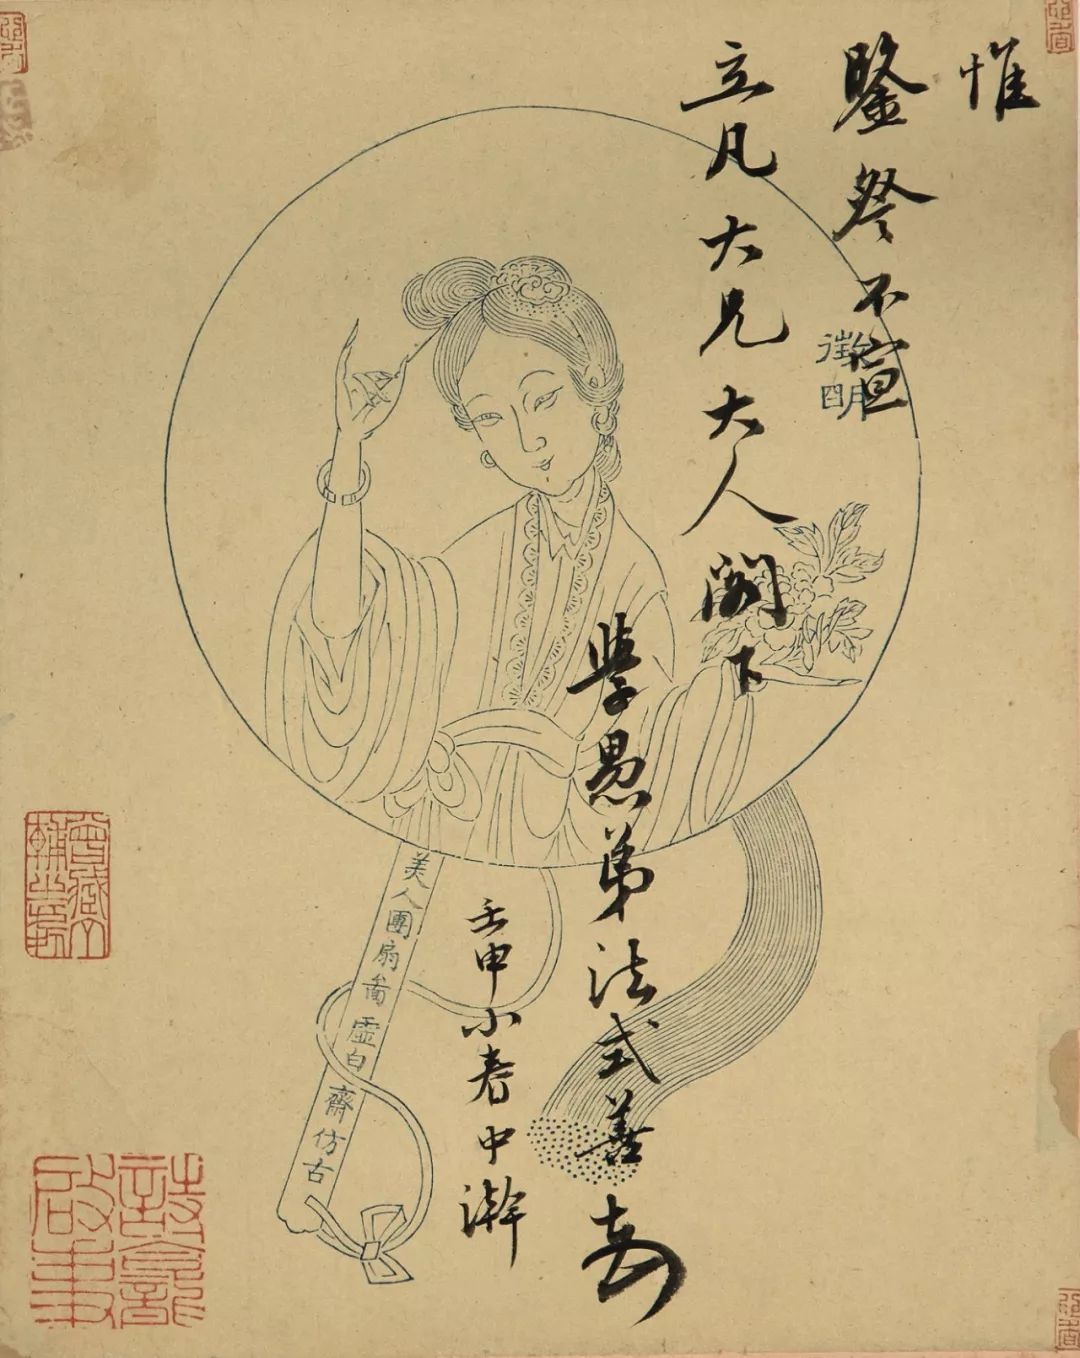 惟
鑒詧不宣
立凡大兄大人閣下
學愚弟法式善
壬申小春中澣
徵明
美人團扇啚 虛白齋仿古
詩龕啟事